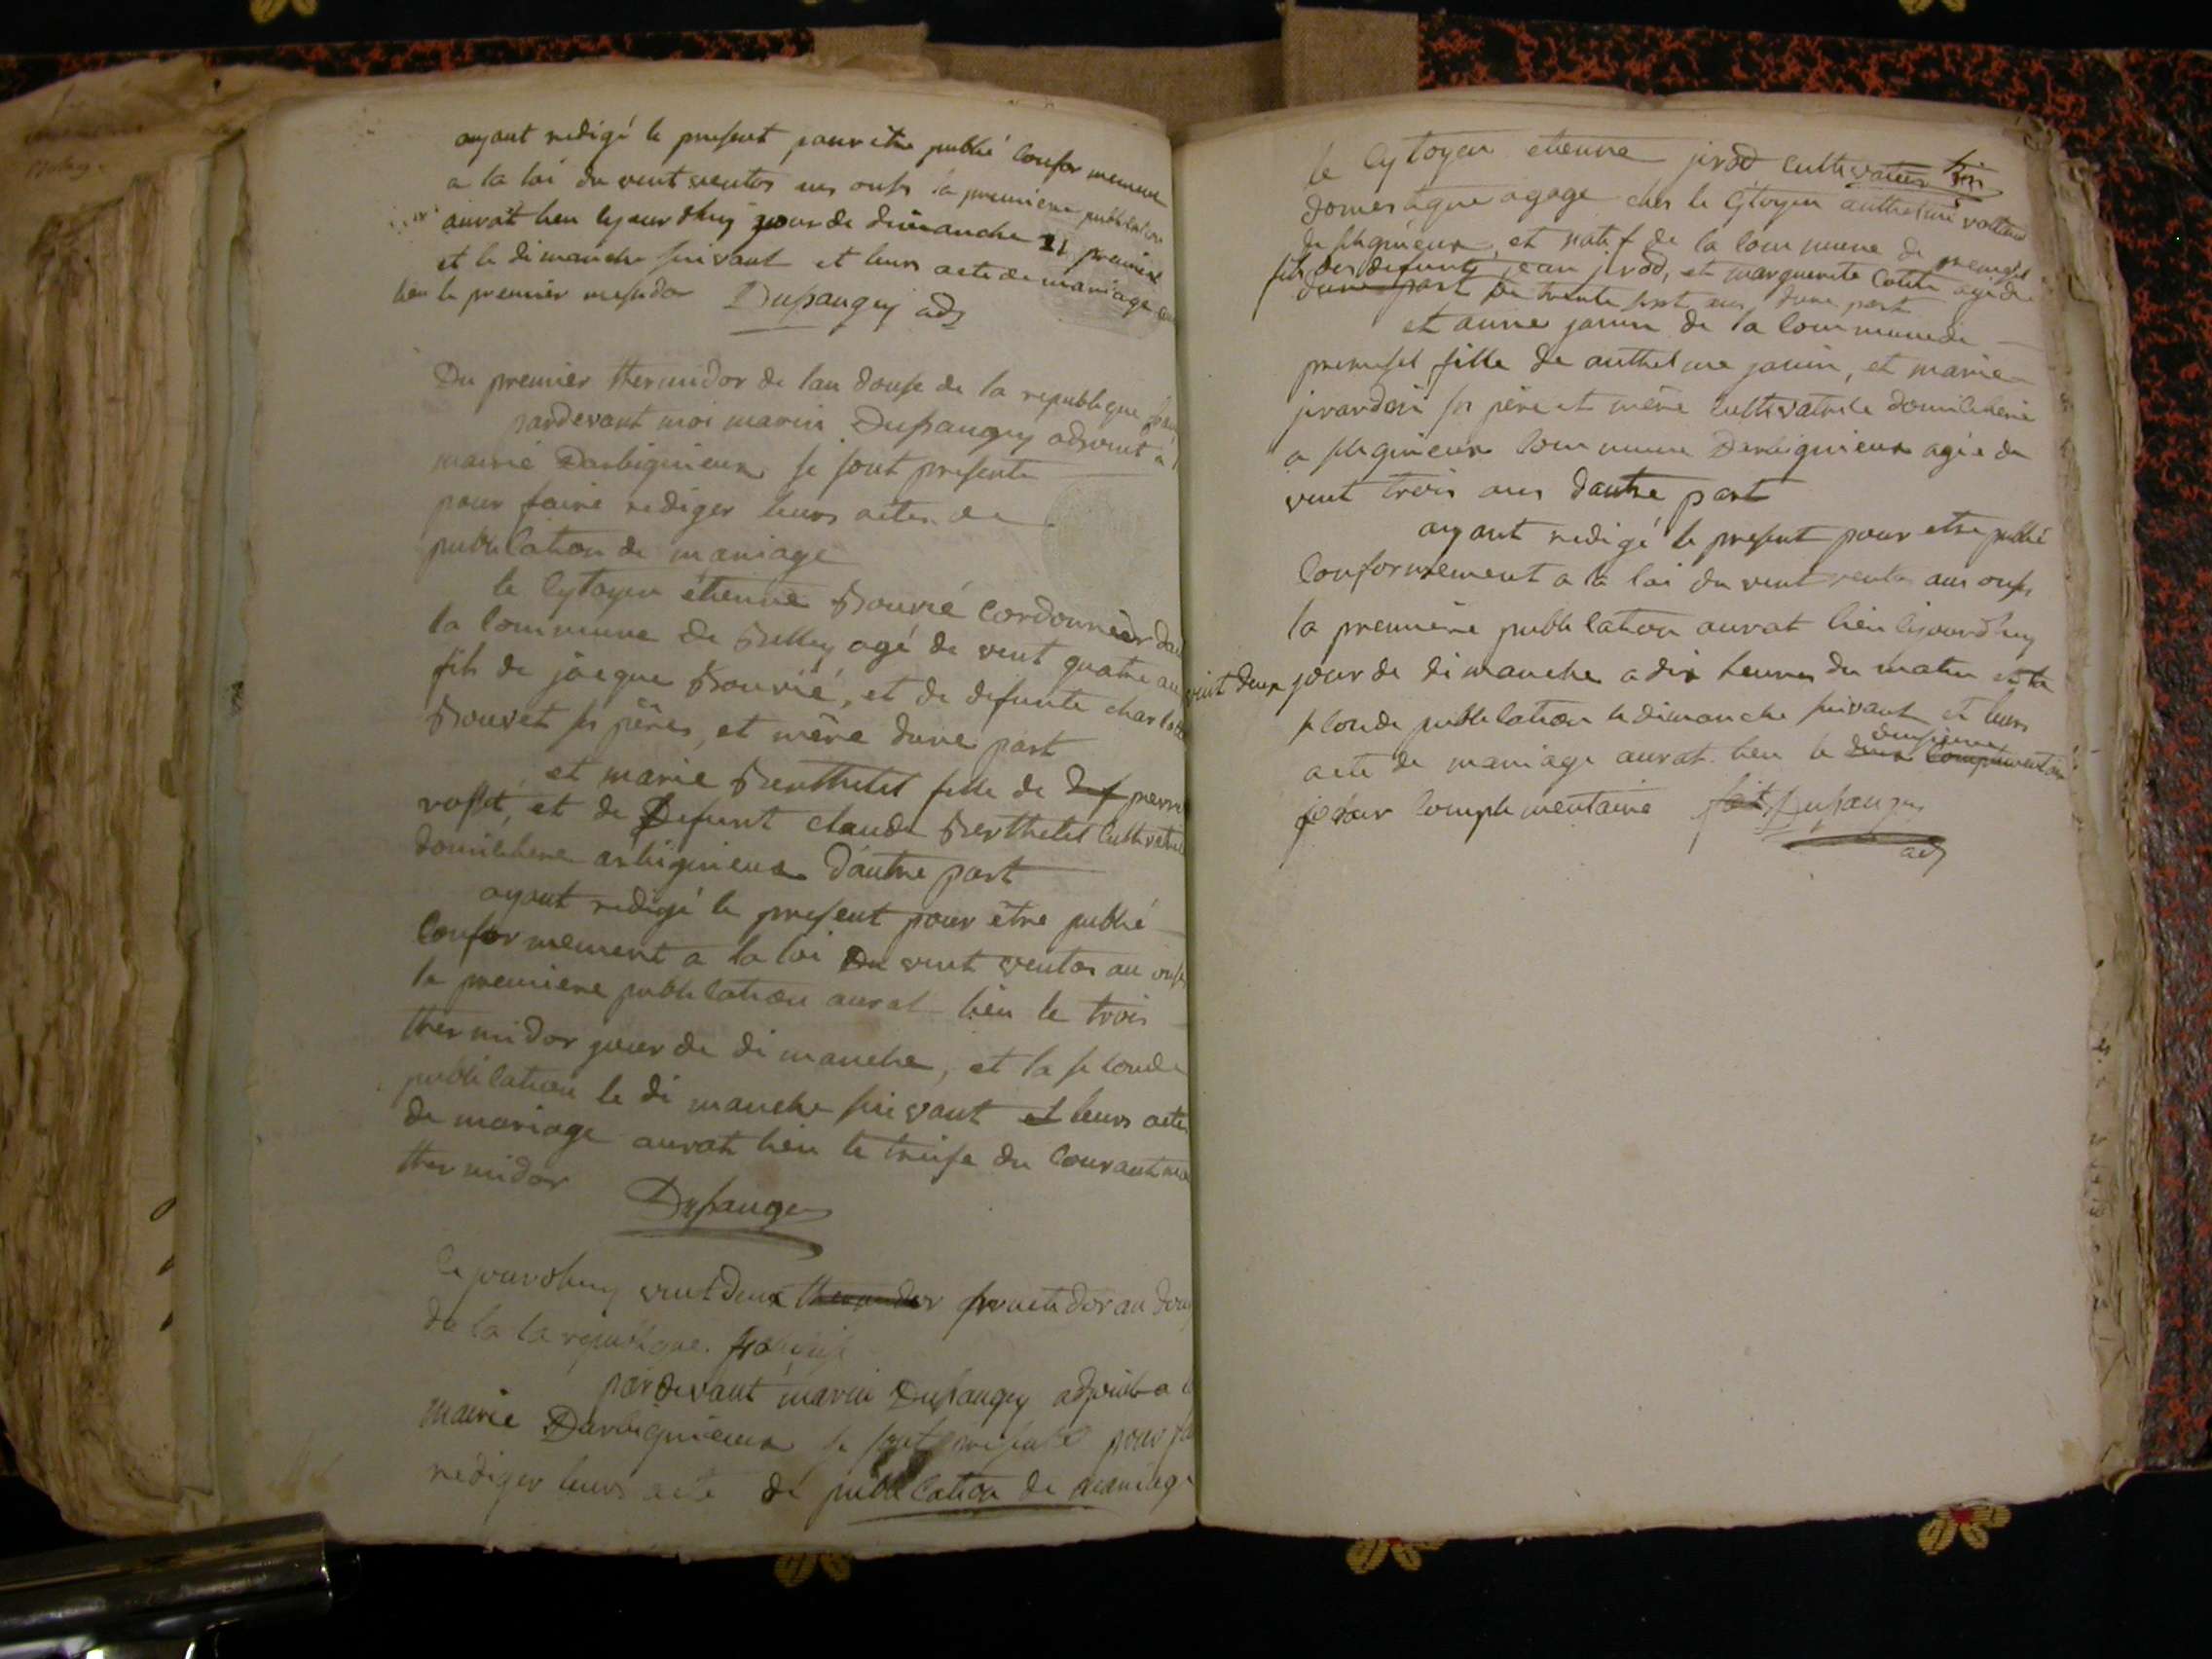 ayant redigé le present pour être publié conformement
a la loi du vent ventos ans onse la première publication
aurat lieu cejourdhuy jour de dimanche 21 premiere
et le dimanche suivant et leurs acte de mariage
lieu le premier messidor Dupauguy adj
Du premier thermidor de lan douse de la republique
pardevant moi marin Dupauguy adjoint à
mairie Darbignieux se sont presente
pour faire rediger leurs actes de
publication de mariage
le Cytoyen étienne Bouvié Cordonnier
la commune de Belley agé de vent quatre ans
fils de jacque Bouvié, et de defunte charlotte
Bouvet ses pères, et mère dune part
et marie Berthelet fille de def pierre
rosset, et de Defunt claude Berthelet Cultivatrice
domiciliere arbignieux dautre part
ayant redigé le present pour être publié
Conformement a la loi du vent ventos an onse
la premiere publication aurat lieu le trois
thermidor jour de dimanche, et la seconde
publication le dimanche suivant et leurs actes
de mariage aurat lieu le treise du Courant
thermidor Dupauguy
Cejourdhuy vent deux thermidor fructidor an
de la la republique française
pardevant marin Dupauguy adjoint a
mairie Darbignieux se sont presente pour
rediger leurs acte de publication de mariage
le Cytoyen etienne jirod cultivateur
domestique a gage ches le Cytoyen anthelme
de slignieux, et natif de la commune de premeysel
fils des defunts jean jirod, et marguerite agé de
dune part de trente sept ans dune part
et anne janin de la commune de
premesel fille de anthelme janin, et marie
jirardin ses père et mère cultivatrice domiciliere
a slignieux commune Darbignieux agée de
vent trois ans dautre part
ayant redigé le present pour etre publié
Conformement a la loi du vent ventos ans onse
la première publication aurat lieu cejourdhuy
vint deux jour de dimanche a dix heures du matin et la
seconde publication le dimanche suivant et leurs
deusieme
acte de mariage aurat lieu le deux complementaire
jour complementaire fait Dupauguy
adj